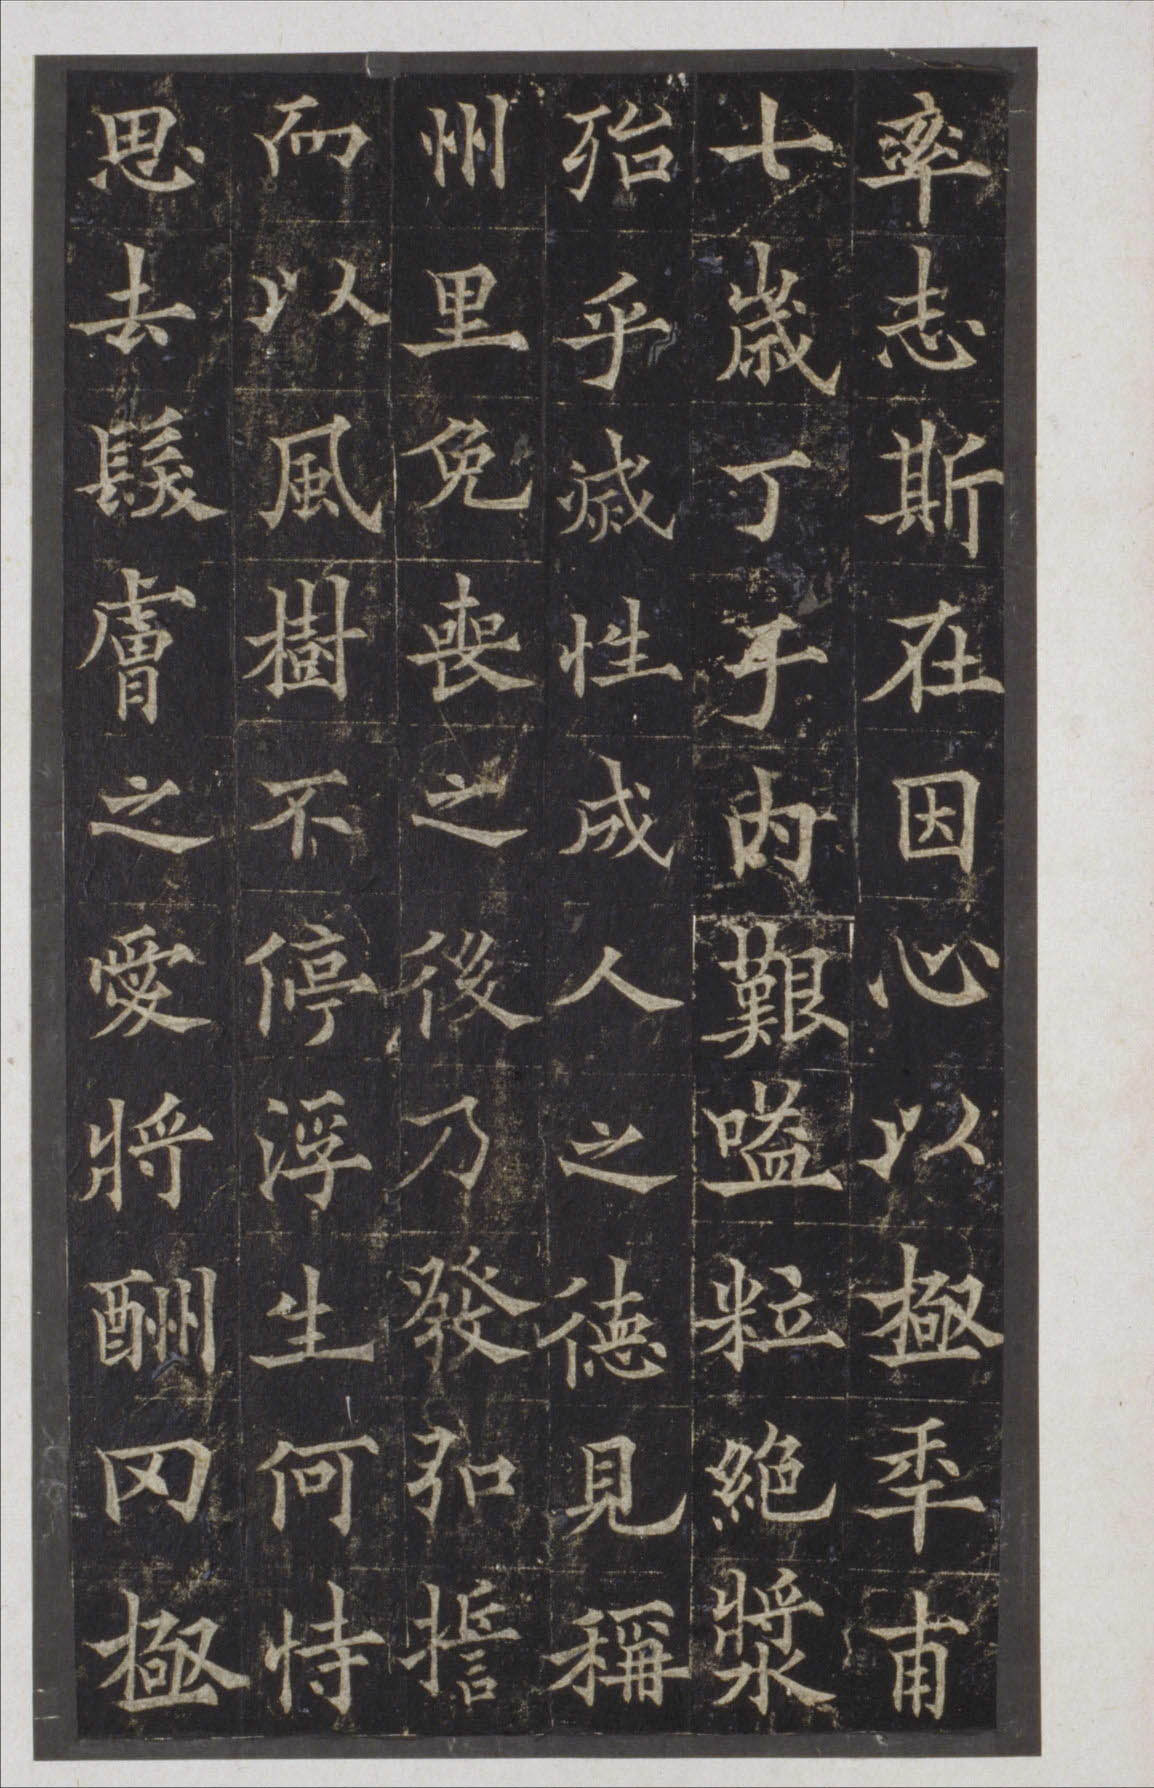 率志斯在因心以極秊甫
七歲丁于內艱嗌粒絕漿
殆乎滅性成人之德見稱
州里免喪之後乃發弘誓
而以風樹不停浮生何恃
思去髮膚之愛將酬罔極